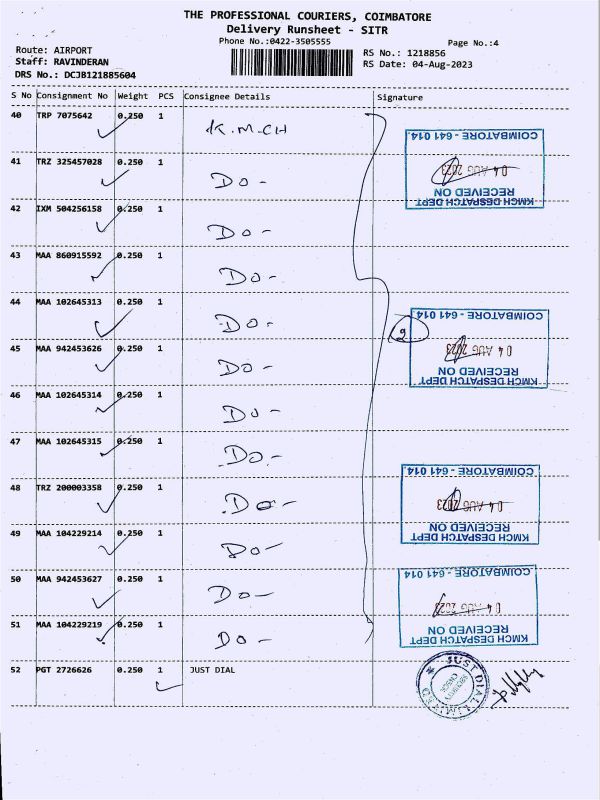 THE PROFESSIONAL COURIERS, COIMBATORE
Delivery Runsheet - SITR
Phone No.:0422-3505555
Page No.:4
Route: AIRPORT
RS No.: 1218856
Staff: RAVINDERAN
RS Date: 04-Aug-2023
DRS No.: DCJB121885604
S No Consignment No Weight PCS Consignee Details Signature
40 TRP 7075642 0.250 1 K.M.CH
COIMBATORE - 641 014.
04 AUG 2023
RECEIVED ON
KMCH DESPATCH DEPT
41 TRZ 325457028 0.250 1 DO-
42 IXM 504256158 0.250 1 DO-
43 MAA 860915592 0.250 1 DO-
44 MAA 102645313 0.250 1 DO-
2
COIMBATORE - 641 014.
04 AUG 2023
RECEIVED ON
KMCH DESPATCH DEPT
45 MAA 942453626 0.250 1 DO-
46 MAA 102645314 0.250 1 DO-
47 MAA 102645315 0.250 1 DO-
COIMBATORE - 641 014.
04 AUG 2023
RECEIVED ON
KMCH DESPATCH DEPT
48 TRZ 200003358 0.250 1 DO-
49 MAA 104229214 0.250 1 DO-
COIMBATORE - 641 014.
04 AUG 2023
RECEIVED ON
KMCH DESPATCH DEPT
50 MAA 942453627 0.250 1 DO-
51 MAA 104229219 0.250 1 DO-
52 PGT 2726626 0.250 1 JUST DIAL
JUST DIAL LIMITED
SECURITY